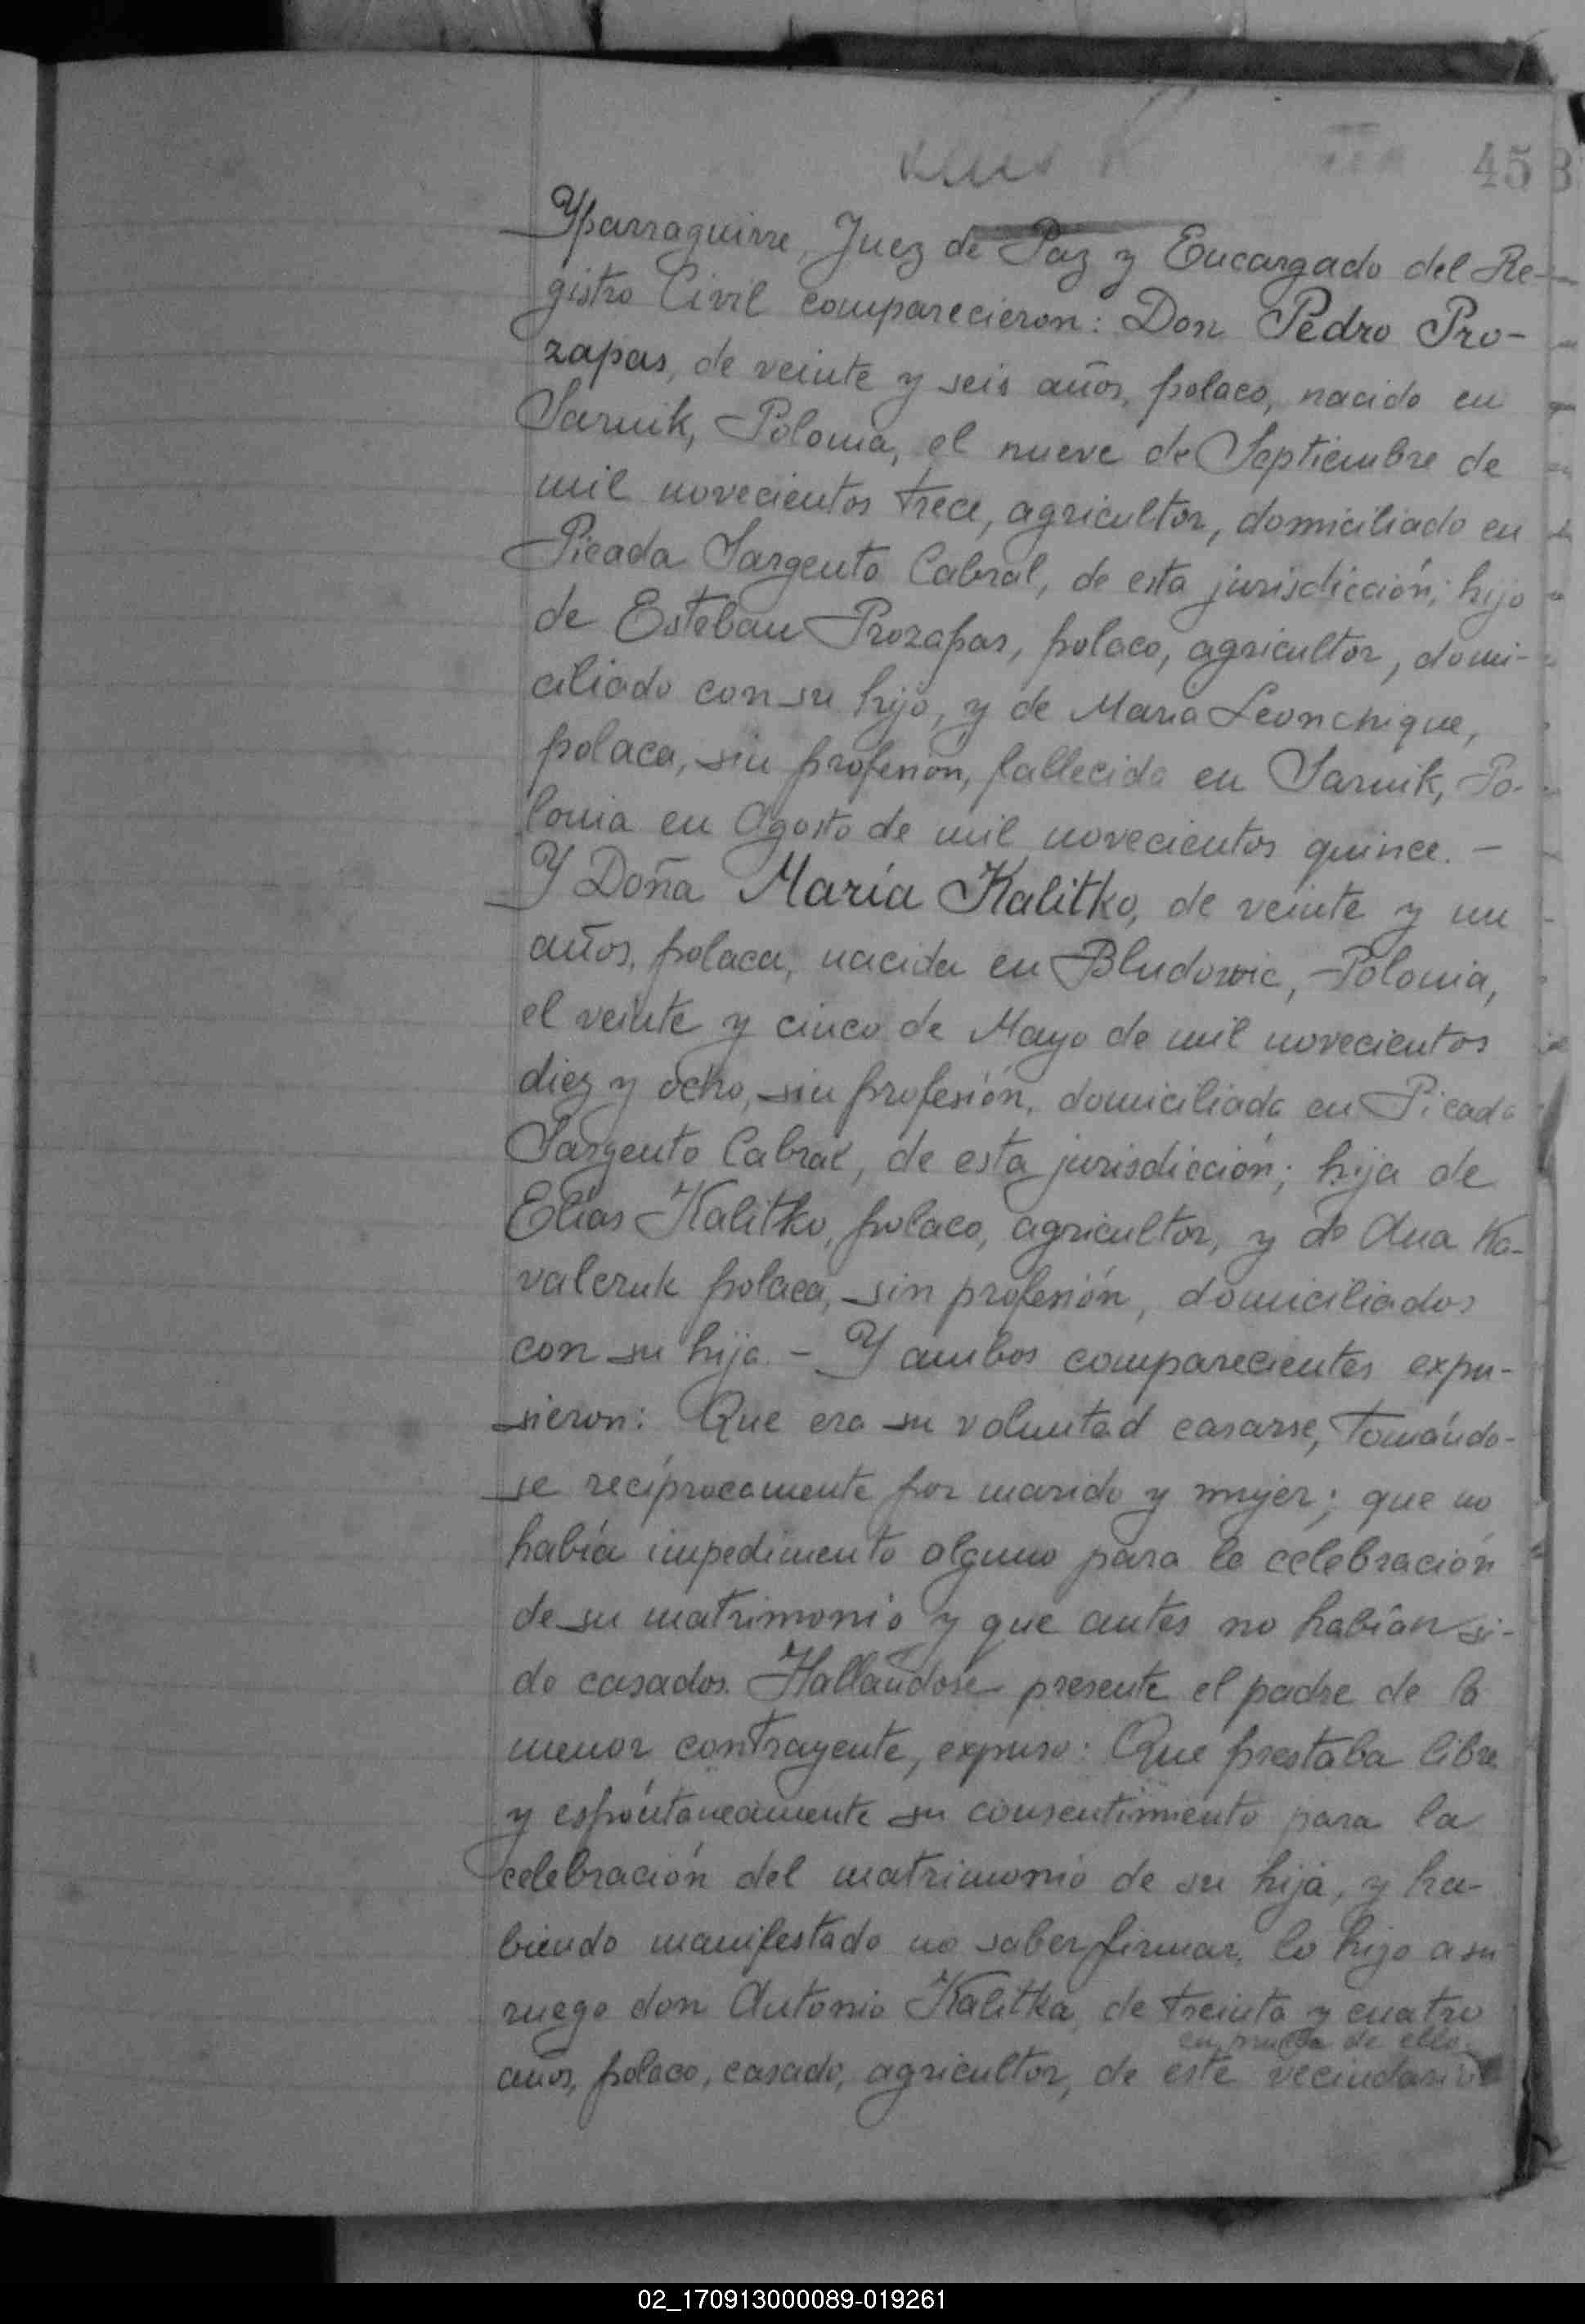 45
Yparraguirre, Juez de Paz y Encargado del Re-
gistro Civil comparecieron: Don Pedro Pro-
zapas, de veinte y seis años, polaco, nacido en
Sarnik, Polonia, el nueve de Septiembre de
mil novecientos trece, agricultor, domiciliado en
Picada Sargento Cabral, de esta jurisdicción; hijo
de Esteban Prozapas, polaco, agricultor, domi-
ciliado con su hijo, y de Maria Leonchique,
polaca, sin profesión, fallecida en Sarnik, Po-
lonia en Agosto de mil novecientos quince. -
Y Doña María Kalitko, de veinte y un
años, polaca, nacida en Bludowic, Polonia,
el veinte y cinco de Mayo de mil novecientos
diez y ocho, sin profesión, domiciliada en Picada
Sargento Cabral, de esta jurisdicción; hija de
Elías Kalitko, polaco, agricultor, y de Ana Ko-
valcruk polaca, sin profesión, domiciliados
con su hija. - Y ambos comparecientes expu-
sieron: Que era su voluntad casarse, tomándo-
se recíprocamente por marido y mujer; que no
había impedimento alguno para la celebración
de su matrimonio y que antes no habían si-
do casados. Hallándose presente el padre de la
menor contrayente, expuso: Que prestaba libre
y espóntaneamente su consentimiento para la
celebración del matrimonio de su hija, y ha-
biendo manifestado no saber firmar, lo hizo a su
ruego don Antonio Kalitka, de treinta y cuatro
en prueba de ello
años, polaco, casado, agricultor, de este vecindario
02_170913000089-019261